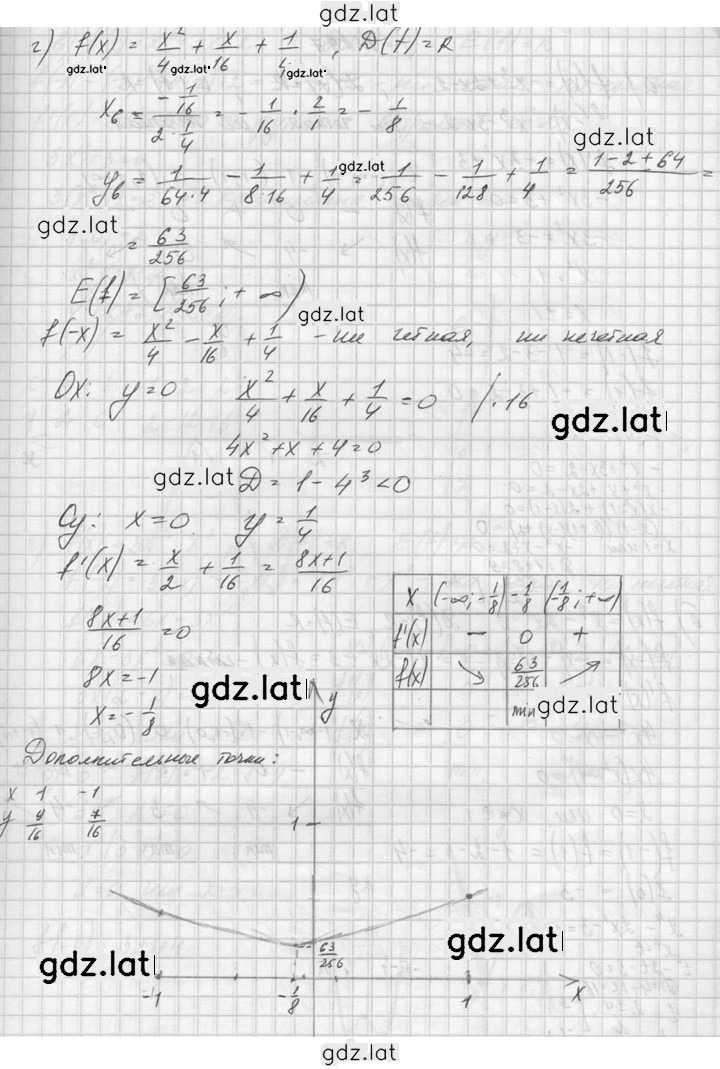 gdz.lat
г) f(x) = x²/4 + x/16 + 1/4, D(f) = R
gdz.lat gdz.lat gdz.lat
x_в = (-1/16)/(2·1/4) = -1/16 · 2/1 = -1/8
gdz.lat
y_в = 1/(64·4) - 1/(8·16) + 1/4 = 1/256 - 1/128 + 1/4 = (1-2+64)/256 =
gdz.lat
gdz.lat
= 63/256
E(f) = [63/256; +∞)
gdz.lat
f(-x) = x²/4 - x/16 + 1/4 - ни четная, ни нечетная
Ox: y=0 x²/4 + x/16 + 1/4 = 0 /·16
gdz.lat
4x²+x+4=0
gdz.lat
D = 1-4³<0
Oy: x=0 y=1/4
f'(x) = x/2 + 1/16 = (8x+1)/16
(8x+1)/16 = 0
8x=-1
x=-1/8
x (-∞; -1/8) -1/8 (-1/8; +∞)
f'(x) - 0 +
f(x) ↘ 63/256 ↗
min
gdz.lat
gdz.lat
y
Дополнительные точки:
x 1 -1
y 9/16 7/16
1
63/256
gdz.lat
gdz.lat
-1 -1/8 1 x
gdz.lat